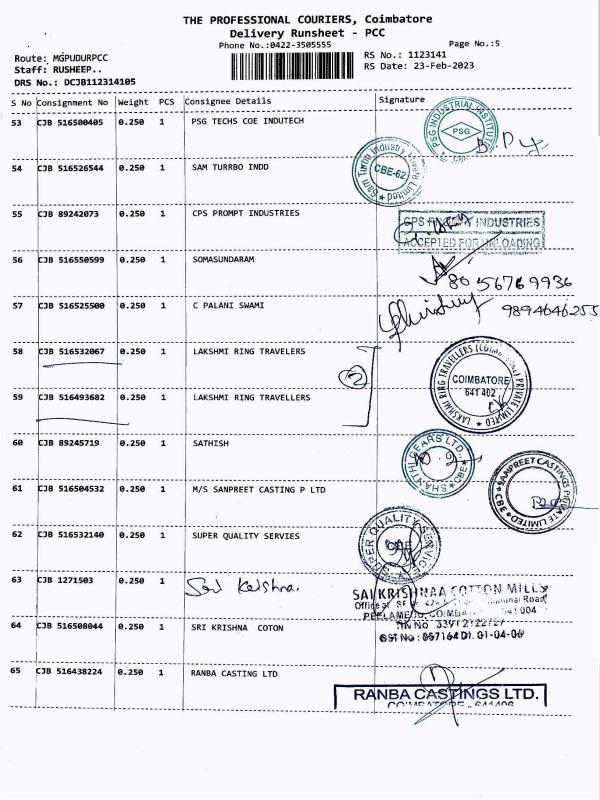 THE PROFESSIONAL COURIERS, Coimbatore
Delivery Runsheet - PCC
Phone No.:0422-3505555
Page No.:5
Route: MGPUDURPCC
Staff: RUSHEEP..
DRS No.: DCJB112314105
RS No.: 1123141
RS Date: 23-Feb-2023
S No Consignment No Weight PCS Consignee Details Signature
53 CJB 516500405 0.250 1 PSG TECHS COE INDUTECH
PSG INDUSTRIAL INSTITUTE
PSG
54 CJB 516526544 0.250 1 SAM TURRBO INDD
Sam Turbo Industry Private Limited
CBE-62
55 CJB 89242073 0.250 1 CPS PROMPT INDUSTRIES
INDUSTRIES
ACCEPTED FOR UNLOADING
56 CJB 516550599 0.250 1 SOMASUNDARAM
80 56769936
57 CJB 516525500 0.250 1 C PALANI SWAMI
9894646255
58 CJB 516532067 0.250 1 LAKSHMI RING TRAVELERS
2
LAKSHMI RING TRAVELLERS PRIVATE LIMITED
COIMBATORE
641 402
59 CJB 516493682 0.250 1 LAKSHMI RING TRAVELLERS
60 CJB 89245719 0.250 1 SATHISH
SHANTHI GEARS LTD.
CBE
61 CJB 516504532 0.250 1 M/S SANPREET CASTING P LTD
SANPREET CASTINGS PRIVATE LIMITED
CBE
62 CJB 516532140 0.250 1 SUPER QUALITY SERVIES
SUPER QUALITY SERVICE
CBE
63 CJB 1271503 0.250 1 Sri Krishna.
SAI KRISHNAA COTTON MILLS
Office at Road
PEELAMEDU, COIMBATORE 641 004
64 CJB 516508044 0.250 1 SRI KRISHNA COTON
CST No : 857164 Dt. 01-04-06
65 CJB 516438224 0.250 1 RANBA CASTING LTD
RANBA CASTINGS LTD.
COIMBATORE - 641406